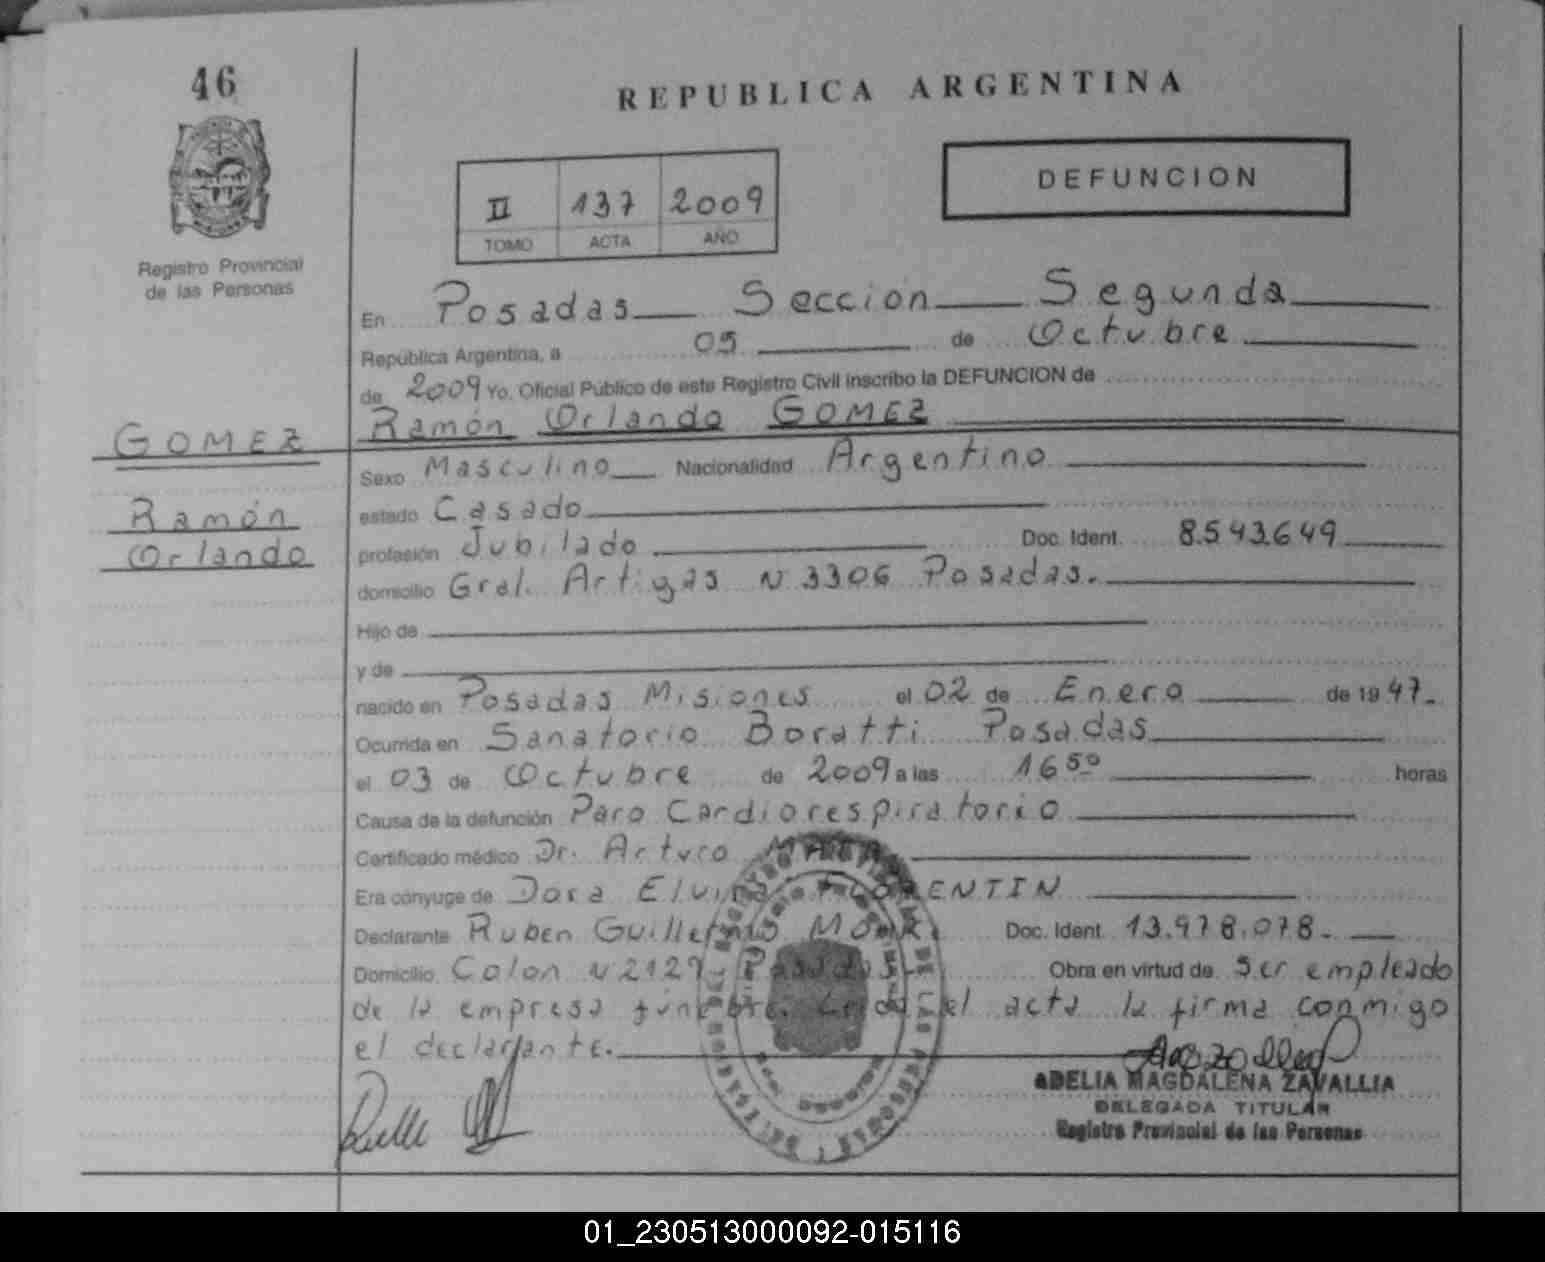 46
REPUBLICA ARGENTINA
Registro Provincial
de las Personas
II 137 2009
TOMO ACTA AÑO
DEFUNCION
En Posadas Sección Segunda
República Argentina, a 05 de Octubre
de 2009 Yo, Oficial Público de este Registro Civil inscribo la DEFUNCION de
Ramón Orlando GOMEZ
GOMEZ
Ramón
Orlando
Sexo Masculino Nacionalidad Argentino
estado Casado
profesión Jubilado Doc. Ident. 8.543.649
domicilio Gral. Artigas N 3306 Posadas.
Hijo de
y de
nacido en Posadas Misiones el 02 de Enero de 1947.
Ocurrida en Sanatorio Boratti Posadas
el 03 de Octubre de 2009 a las 16 50 horas
Causa de la defunción Paro Cardiorespiratorio
Certificado médico Dr. Arturo
Era cónyuge de Dora Elvira FLORENTIN
Declarante Ruben Guillermo Doc. Ident. 13.978.078.
Domicilio Colon N 2129 Posadas Obra en virtud de Ser empleado
de la empresa fúnebre. Leida el acta la firma conmigo
el declarante.
ADELIA MAGDALENA ZAVALLIA
DELEGADA TITULAR
Registro Provincial de las Personas
01_230513000092-015116